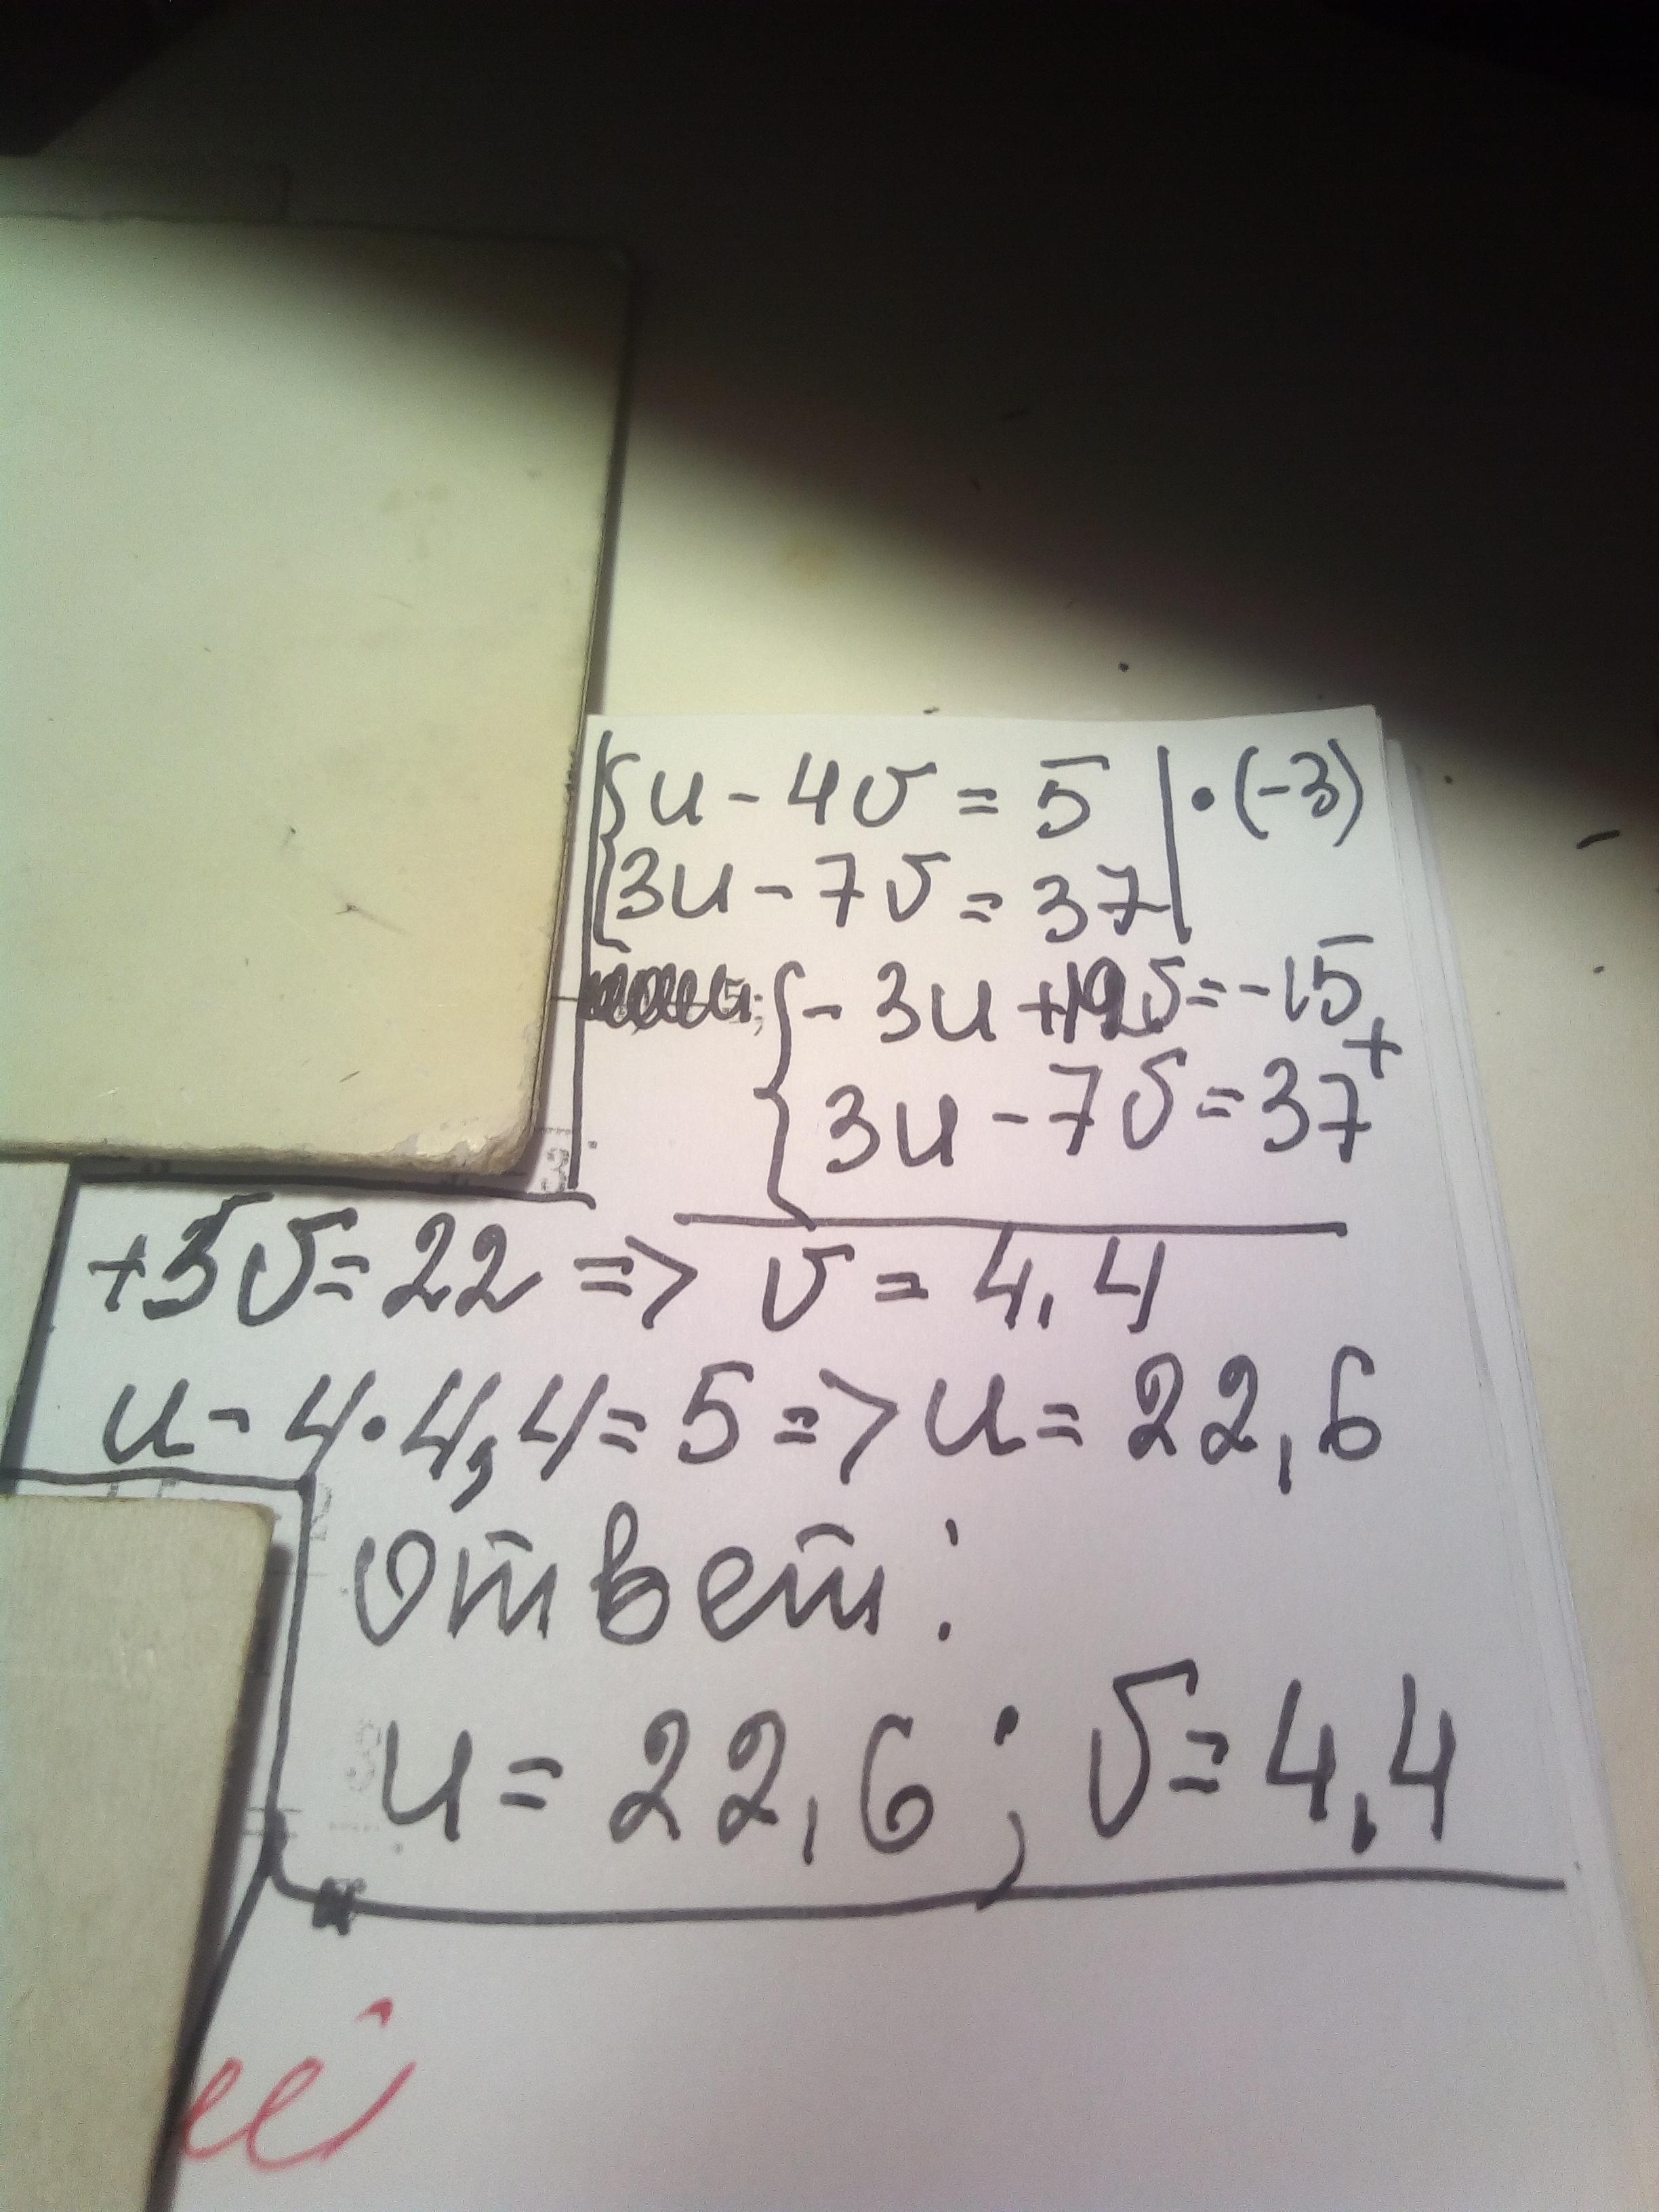 {u - 4v = 5 | • (-3)
{3u - 7v = 37 |
{- 3u + 12v = -15
+
3u - 7v = 37
+5v = 22 => v = 4,4
u - 4 • 4,4 = 5 => u = 22,6
Ответ:
u = 22,6 ; v = 4,4